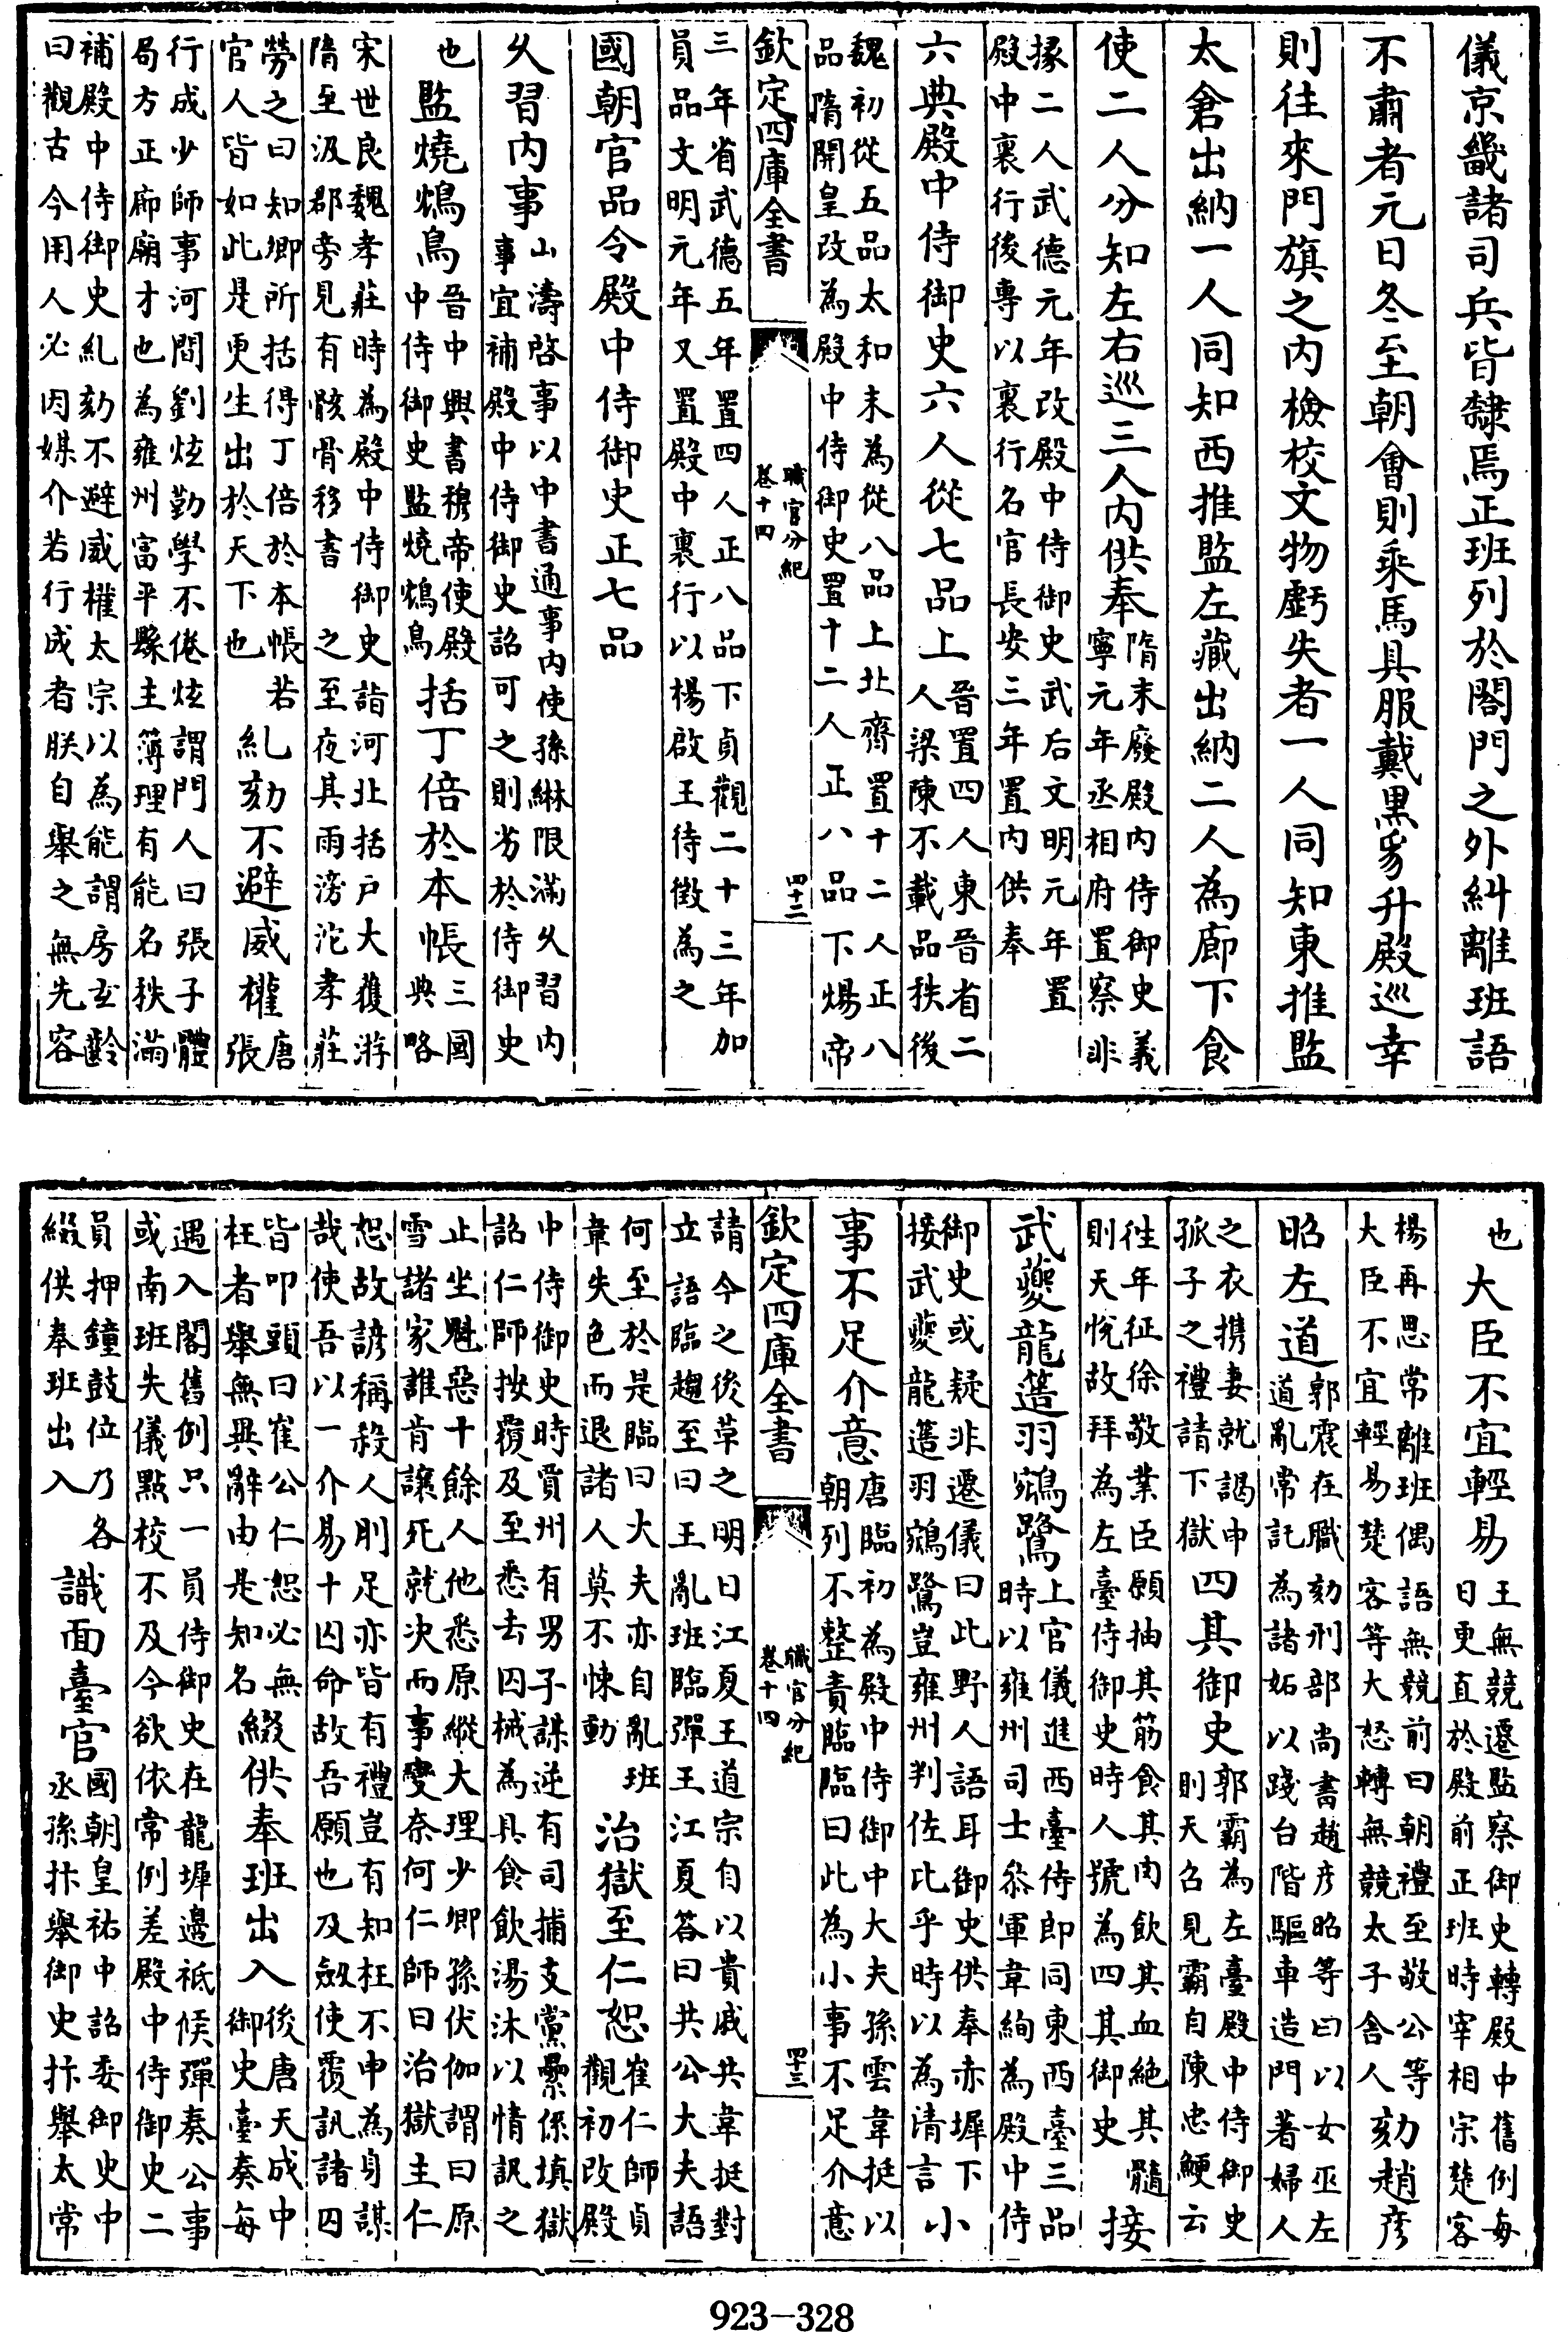 儀京畿諸司兵皆隸焉正班列於閤門之外糾離班語
不肅者元日冬至朝會則乘馬具服戴黑豸升殿巡幸
則往來門旗之內檢校文物虧失者一人同知東推監
太倉出納一人同知西推監左藏出納二人為廊下食
使二人分知左右巡三人內供奉隋末廢殿內侍御史義
寧元年丞相府置察非
掾二人武德元年改殿中侍御史武后文明元年置
殿中裏行後專以裏行名官長安三年置內供奉
六典殿中侍御史六人從七品上晉置四人東晉省二
人梁陳不載品秩後
魏初從五品太和末為從八品上北齊置十二人正八
品隋開皇改為殿中侍御史置十二人正八品下煬帝
欽定四庫全書
職官分紀
卷十四
四十二
三年省武德五年置四人正八品下貞觀二十三年加
員品文明元年又置殿中裏行以楊啟王待徵為之
國朝官品令殿中侍御史正七品
久習內事山濤啓事以中書通事內使孫綝限滿久習內
事宜補殿中侍御史詔可之則劣於侍御史
也監燒鴆鳥晉中興書穆帝使殿
中侍御史監燒鴆鳥括丁倍於本帳三國
典略
宋世良魏孝莊時為殿中侍御史詣河北括戶大獲游
隋至汲郡旁見有骸骨移書之至夜其雨滂沱孝莊
勞之曰知卿所括得丁倍於本帳若
官人皆如此是更生出於天下也糺劾不避威權唐
張
行成少師事河間劉炫勤學不倦炫謂門人曰張子體
局方正廊廟才也為雍州富平縣主簿理有能名秩滿
補殿中侍御史糺劾不避威權太宗以為能謂房玄齡
曰觀古今用人必因媒介若行成者朕自舉之無先容
也大臣不宜輕易王無競遷監察御史轉殿中舊例每
日更直於殿前正班時宰相宗楚客
楊再思常離班偶語無競前曰朝禮至敬公等
大臣不宜輕易楚客等大怒轉無競太子舍人劾趙彦
昭左道郭震在職劾刑部尚書趙彦昭等曰以女巫左
道亂常託為諸妬以踐台階驅車造門著婦人
之衣携妻就謁申
孤子之禮請下獄四其御史郭霸為左臺殿中侍御史
則天召見霸自陳忠鯁云
徃年征徐敬業臣願抽其筋食其肉飲其血絕其髓
則天悅故拜為左臺侍御史時人號為四其御史接
武夔龍簉羽鵷鷺上官儀進西臺侍郎同東西臺三品
時以雍州司士叅軍韋絢為殿中侍
御史或疑非遷儀曰此野人語耳御史供奉赤墀下
接武夔龍簉羽鵷鷺豈雍州判佐比乎時以為清言小
事不足介意唐臨初為殿中侍御中大夫孫雲韋挺以
朝列不整責臨臨曰此為小事不足介意
欽定四庫全書
職官分紀
卷十四
四十三
請今之後草之明日江夏王道宗自以貴戚共韋挺對
立語臨趨至曰王亂班臨彈王江夏荅曰共公大夫語
何至於是臨曰大夫亦自亂班
韋失色而退諸人莫不悚動治獄至仁恕崔仁師貞
觀初改殿
中侍御史時賈州有男子謀逆有司捕支黨纍係填獄
詔仁師按覆及至悉去囚械為具食飲湯沐以情訊之
止坐魁惡十餘人他悉原縱大理少卿孫伏伽謂曰原
雪諸家誰肯讓死就决而事變奈何仁師曰治獄主仁
恕故諺稱殺人刖足亦皆有禮豈有知枉不申為身謀
哉使吾以一介易十囚命故吾願也及敇使覆訊諸囚
皆叩頭曰崔公仁恕必無
枉者舉無異辭由是知名綴供奉班出入後唐天成中
御史臺奏每
遇入閤舊例只一員侍御史在龍墀邊祗候彈奏公事
或南班失儀點校不及今欲依常例差殿中侍御史二
員押鐘鼓位乃各
綴供奉班出入識面臺官國朝皇祐中詔委御史中
丞孫抃舉御史抃舉太常
923-328